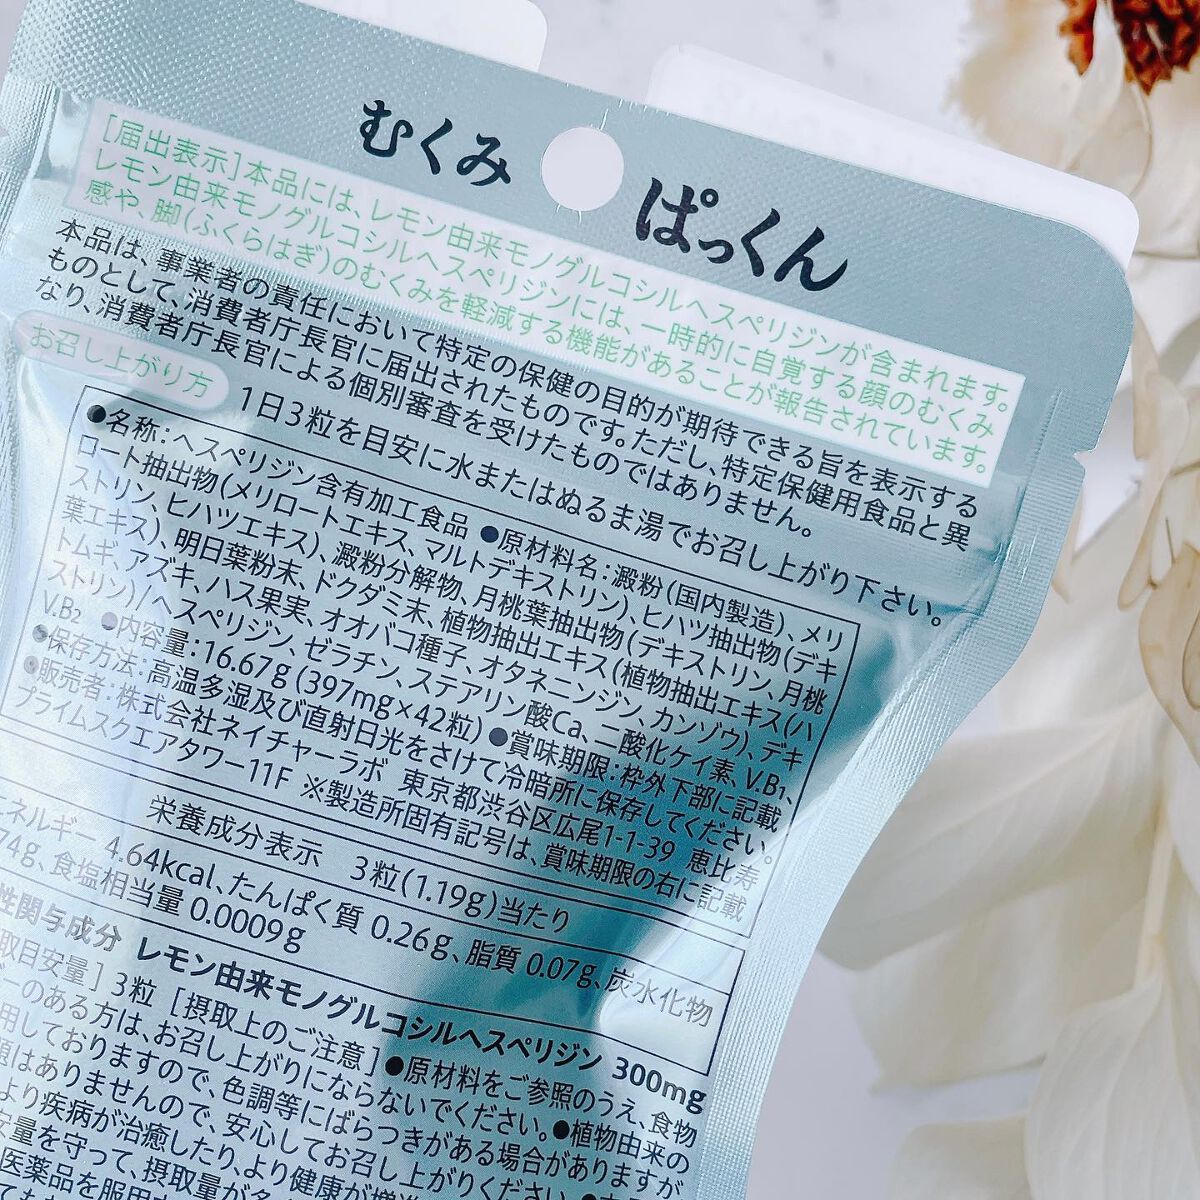 むくみ ぱっくん
[届出表示]本品には、レモン由来モノグルコシルヘスペリジンが含まれます。
レモン由来モノグルコシルヘスペリジンには、一時的に自覚する顔のむくみ
感や、脚(ふくらはぎ)のむくみを軽減する機能があることが報告されています。
本品は、事業者の責任において特定の保健の目的が期待できる旨を表示する
ものとして、消費者庁長官に届出されたものです。ただし、特定保健用食品と異
なり、消費者庁長官による個別審査を受けたものではありません。
お召し上がり方 1日3粒を目安に水またはぬるま湯でお召し上がり下さい。
●名称:ヘスペリジン含有加工食品 ●原材料名:澱粉(国内製造)、メリ
ロート抽出物(メリロートエキス、マルトデキストリン)、ヒハツ抽出物(デキ
ストリン、ヒハツエキス)、澱粉分解物、月桃葉抽出物(デキストリン、月桃
葉エキス)、明日葉粉末、ドクダミ末、植物抽出エキス(植物抽出エキス(ハ
トムギ、アズキ、ハス果実、オオバコ種子、オタネニンジン、カンゾウ)、デキ
ストリン)/ヘスペリジン、ゼラチン、ステアリン酸Ca、二酸化ケイ素、V.B₁、
V.B₂ ●内容量:16.67g(397mg×42粒) ●賞味期限:枠外下部に記載
●保存方法:高温多湿及び直射日光をさけて冷暗所に保存してください。
●販売者:株式会社ネイチャーラボ 東京都渋谷区広尾1-1-39 恵比寿
プライムスクエアタワー11F ※製造所固有記号は、賞味期限の右に記載
栄養成分表示 3粒(1.19g)当たり
エネルギー 4.64kcal、たんぱく質 0.26g、脂質 0.07g、炭水化物
74g、食塩相当量 0.0009g
性関与成分 レモン由来モノグルコシルヘスペリジン 300mg
取目安量] 3粒 [摂取上のご注意] ●原材料をご参照のうえ、食物
ーのある方は、お召し上がりにならないでください。●植物由来の
用しておりますので、色調等にばらつきがある場合がありますが
題はありませんので、安心してお召し上がりください。
より疾病が治癒したり、より健康が増進
安量を守って、摂取量が多
医薬品を服用